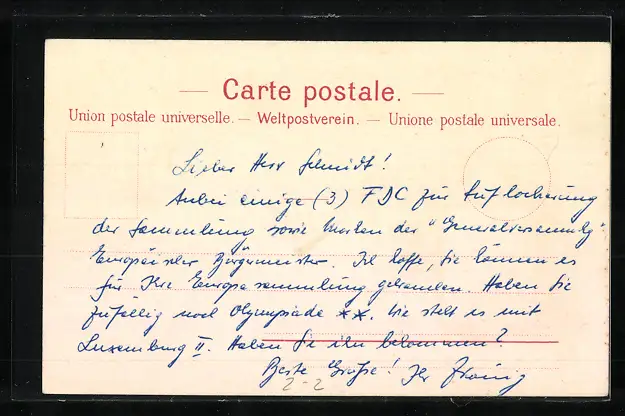 Carte postale.
Union postale universelle. — Weltpostverein. — Unione postale universale.
Lieber Herr Schmidt!
Anbei einige (3) FDC zur Auflockerung
der Sammlung sowie Marken der "Generalversammlg"
Europäischer Bürgermeister. Ich hoffe, Sie können es
für Ihre Europasammlung gebrauchen. Haben Sie
zufällig noch Olympiade **. Wie steht es mit
Luxemburg II. Haben Sie ihn bekommen?
Beste Grüße! Ihr
2-2